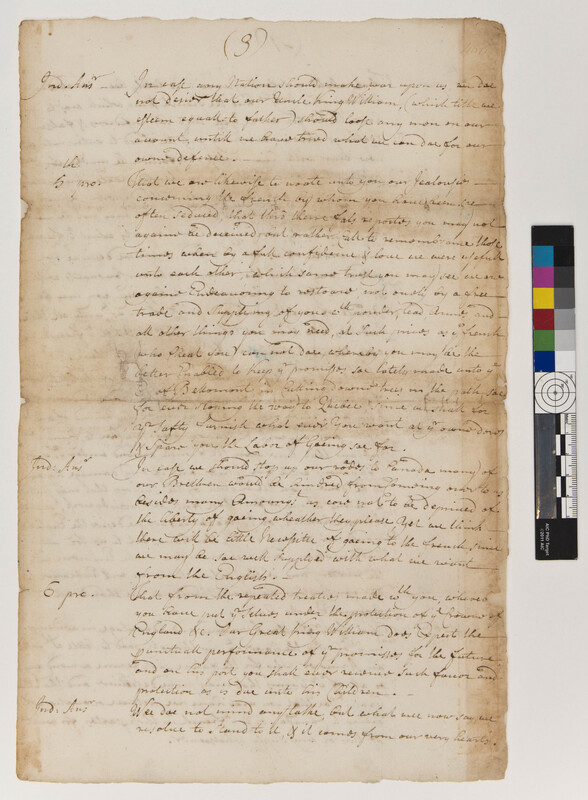 (3)
Ind: Ansr In case any Nation should make war upon us, we doe
not desire that our Uncle King William, (which title we
esteem equall to father) should lose any men on our
account, untill we have tryed what we can doe for our
owne defence.
5th pro: That we are likewise to note unto you our Jealousie
concerning the french by whom you have been soe
often seduced, that thro there fals reports you may not
againe be deceaved, but rather call to remembrance those
times when by a full confidence & love we were usefull
unto each other, which same trust you may see we are
againe Endeavouring to restore not only by a free
trade and supplying of you wth powder, lead Armes and
all other things you may need, at such prices as ye french
who cheat you) can not doe, whereby you may be the
better Enabled to keep ye promise, soe lately made unto ye
of Bellomont in cutting downe trees in the path, soe
for ever stoping the road to Quebec, since we shall for
yr safty furnish what ever you want at yr owne doors
& spare you the Labor of goeing soe far.
Ind: Ansr In case we should stop up our rodes to Canada many of
our Brethren would be hindred from comeing over to us
besides many Amongst us cow not to be deprived of
the liberty of goeing wheather they please, yet we think
there will be little Necessitie of goeing to the french since
we may be soe well supplied with what we want
from the English. -
6 pro. That from the repeated treaties made wth you, wherein
you have put yr selves under the protection of ye Crowne of
England &c. Our Great King William does Expect the
punctuall performance of yr promisses for the future
and on his part you shall ever receive such favor and
protection as is due unto his Children. -
Ind: Ansr Wee doe not mind any talke, but what we now say, we
resolve to stand to it, & it comes from our very hearts.